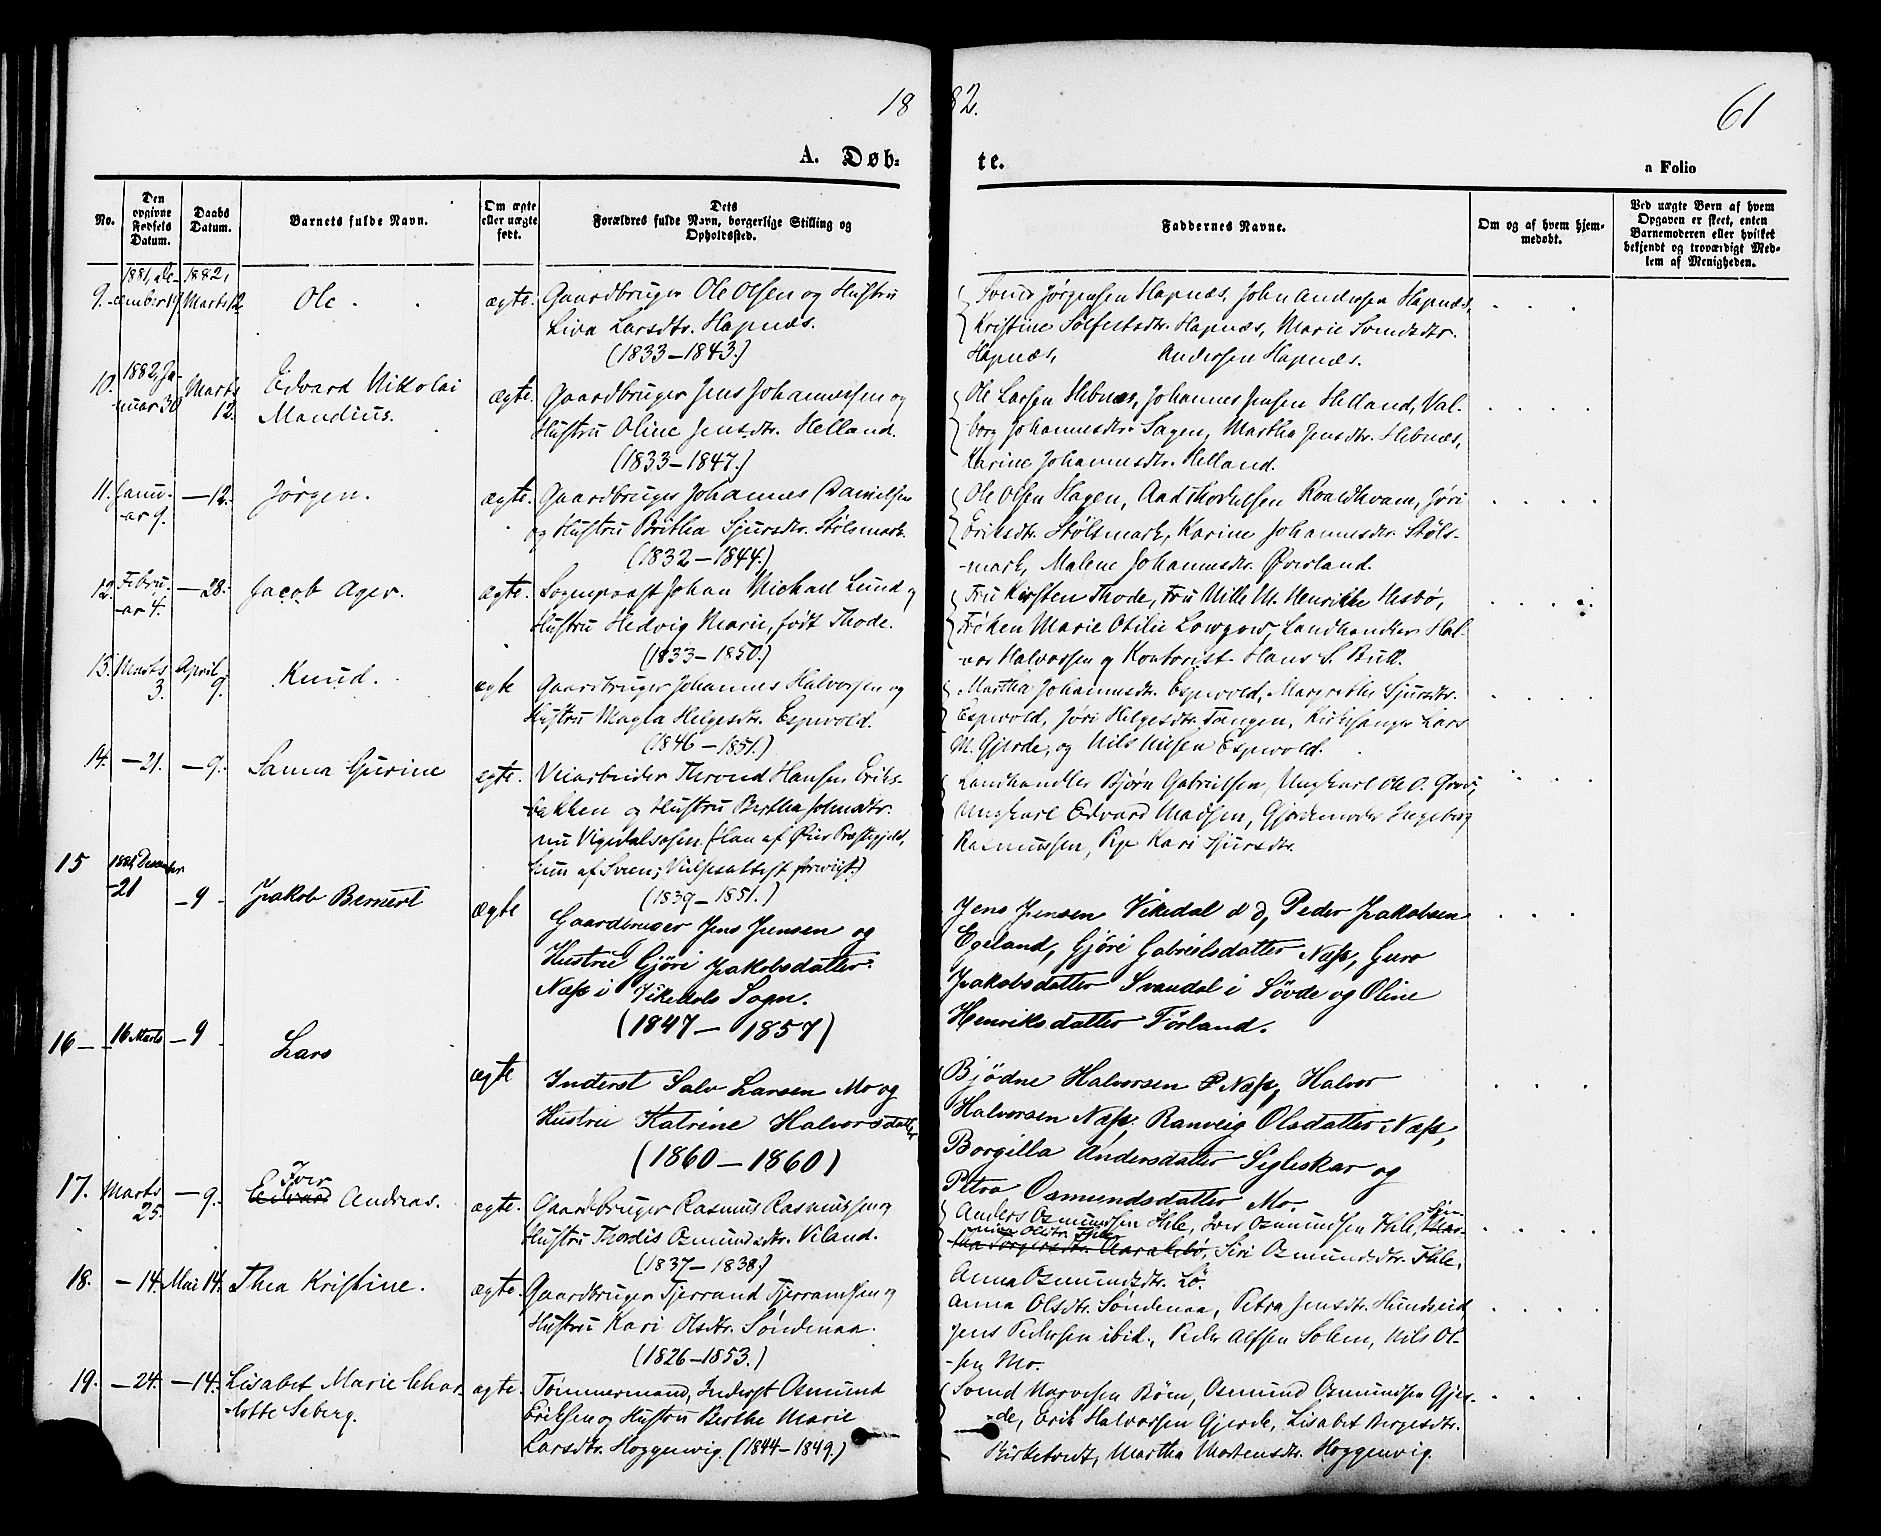 18 82.
61
A. Døb- te.
a Folio
No.
Den opgivne Fødsels Datum.
Daabs Datum.
Barnets fulde Navn.
Om ægte eller uægte født.
Dets Forældres fulde Navn, borgerlige Stilling og Opholdssted.
Faddernes Navne.
Om og af hvem hjemmedøbt.
Ved uægte Børn af hvem Opgaven er skeet, enten Barnemoderen eller hvilket bekjendt og troværdigt Medlem af Menigheden.
9. 1881, December 19. 1882, Marts 12 Ole. ægte. Gaardbruger Ole Olsen og Hustru
Liva Larsdtr. Hapnæs.
(1833-1843.)
Svend Jørgensen Hapnæs, John Andersen Hapnæs,
Kristine Sølfestsdtr. Hapnæs, Marie Svendsdtr.
Hapnæs, Andersen Hapnæs.
10. 1882, Januar 30 Marts 12. Edvard Nikolai
Mandius.
ægte. Gaardbruger Jens Johannessen og
Hustru Oline Jensdtr. Helland.
(1833-1847.)
Ole Larsen Hebnæs, Johannes Jensen Helland, Val-
borg Johannesdtr. Sagen, Martha Jensdtr. Hebnæs,
Karine Johannesdtr. Helland.
11. Janu-
ar 9. -12. Jørgen. ægte. Gaardbruger Johannes Danielsen
og Hustru Britha Sjursdtr. Stølsmark.
(1832-1844.)
Ole Olsen Hagen, Aad Thorkelsen Roaldkvam, Jøri
Eriksdtr. Stølsmark, Karine Johannesdtr. Støls-
-mark, Malene Johannesdtr. Øverland.
12. Febru-
ar 4. -28. Jacob Ager. ægte. Sognepræst Johan Michael Lund og
Hustru Hedvig Marie, født Thode.
(1833-1850.)
Fru Kirsten Thode, Fru Mille M. Henrikke Hesbø,
Frøken Marie Otilie Lowzow, Landhandler Hal-
vor Halvorsen og Kontorist Hans S. Bull.
13. Marts
3. April
9. Knud. ægte Gaardbruger Johannes Halvorsen og
Hustru Magla Helgesdtr. Espevold.
(1846-1851.)
Martha Johannesdtr. Espevold, Margrethe Sjursdtr.
Espevold, Jøri Helgesdtr. Tangen, Kirkesanger Lars
M. Gjerde, og Nils Nilsen Espevold.
14. -21. -9. Sanna Gurine ægte. Veiarbeider Thrond Hansen Eriks-
bakken og Hustru Bertha Johnsdtr.
nu Vigedalsosen (Han af Øier Præstegjeld,
hun af Sveen; Vielsesattest forevist.)
(1839-1851.)
Landhandler Bjørn Gabrielsen, Ungkarl Ole O.
Ungkarl Edvard Madsen, Gjordemoder Ingeborg
Rasmussen, Pige Kari Sjursdtr.
15 1881 December
-21 -9 Jakob Bernert ægte Gaardbruger Jens Jensen og
Hustru Gjøri Jakobsdatter
Næss i Vikedals Sogn.
(1847-1857)
Jens Jensen Vikedal d.d, Peder Jakobsen
Egeland, Gjøri Gabrielsdatter Næss, Guro
Jakobsdatter Svandal i Søvde og Oline
Henriksdatter Førland.
16 - 16 Marts - 9 Lars ægte Inderst Salv Larsen Mo og
Hustru Katrine Halvorsdatter
(1860-1860)
Bjødne Halvorsen Næss, Halvor
Halvorsen Næss, Ranveig Olsdatter Næss,
Borgilla Andersdatter Sigleskar og
Petra Osmundsdatter Mo.
17. Marts
25. -9. Iver
Edvard Andreas. ægte. Gaardbruger Rasmus Rasmussen og
Hustru Thordis Osmundsdtr. Viland.
(1837-1838.)
Anders Osmundsen Hile, Iver Osmundsen Hile,
Siri Osmundsdtr. Hile,
Anna Osmundsdtr. Lø.
18. -14. Mai 14. Thea Kristine. ægte. Gaardbruger Tjerrand Tjerransen og
Hustru Kari Olsdtr. Søndenaa.
(1826-1853.)
Anna Olsdtr. Søndenaa, Petra Jensdtr. Hundseid,
Jens Pedersen ibid., Peder Alfsen Solem, Nils Ol-
-sen Mo.
19. -24. -14. Lisabet Marie Char-
-lotte Seberg. ægte. Tømmermand, Inderst Osmund
Eriksen og Hustru Berthe Marie
Larsdtr. Hoggenvig. (1844-1849.)
Svend Børn, Osmund Osmundsen Gjer-
-de, Erik Halvorsen Gjerde, Lisabet Børgesdtr.
Birketvedt, Martha Mortensdtr. Hoggenvig.